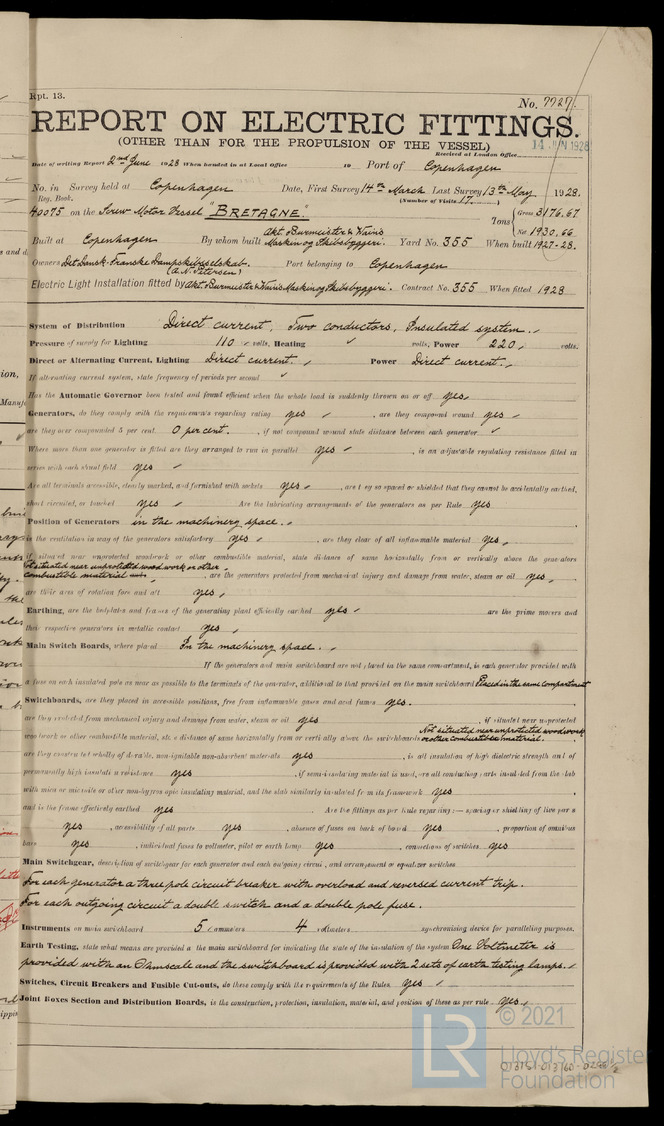 Rpt. 13.
No. 7727.
REPORT ON ELECTRIC FITTINGS.
(OTHER THAN FOR THE PROPULSION OF THE VESSEL)
14 JUN 1928
Received at London Office
Date of writing Report 2nd June 1928 When handed in at Local Office 19 Port of Copenhagen
No. in Survey held at Copenhagen Date, First Survey 14th March Last Survey 13th May 1928.
Reg. Book. (Number of Visits 17.)
40075 on the Screw Motor Vessel "BRETAGNE." Tons Gross 3176.67 Net 1930.66
Built at Copenhagen By whom built Akt. Burmeister & Wains Maskin og Skibsbyggeri. Yard No. 355 When built 1927-28.
Owners Det Dansk-Franske Dampskibsselskab. (A. N. Petersen) Port belonging to Copenhagen
Electric Light Installation fitted by Akt. Burmeister & Wains Maskin og Skibsbyggeri. Contract No. 355 When fitted 1928
System of Distribution Direct current, Two conductors, Insulated system.
Pressure of supply for Lighting 110 volts, Heating volts, Power 220 volts.
Direct or Alternating Current, Lighting Direct current. Power Direct current.
If alternating current system, state frequency of periods per second
Has the Automatic Governor been tested and found efficient when the whole load is suddenly thrown on or off yes
Generators, do they comply with the requirements regarding rating yes, are they compound wound yes
are they over compounded 5 per cent 0 per cent., if not compound wound state distance between each generator
Where more than one generator is fitted are they arranged to run in parallel yes, is an adjustable regulating resistance fitted in
series with each shunt field yes
Are all terminals accessible, clearly marked, and furnished with sockets yes, are they so spaced or shielded that they cannot be accidentally earthed,
short circuited, or touched yes Are the lubricating arrangements of the generators as per Rule yes
Position of Generators in the machinery space.
is the ventilation in way of the generators satisfactory yes, are they clear of all inflammable material yes
if situated near unprotected woodwork or other combustible material, state distance of same horizontally from or vertically above the generators
Not situated near unprotected wood work or other
combustible material, are the generators protected from mechanical injury and damage from water, steam or oil yes
are their axes of rotation fore and aft yes
Earthing, are the bedplates and frames of the generating plant efficiently earthed yes are the prime movers and
their respective generators in metallic contact yes
Main Switch Boards, where placed In the machinery space.
If the generators and main switchboard are not placed in the same compartment, is each generator provided with
a fuse on each insulated pole as near as possible to the terminals of the generator, additional to that provided on the main switchboard Placed in the same compartment
Switchboards, are they placed in accessible positions, free from inflammable gases and acid fumes yes.
are they protected from mechanical injury and damage from water, steam or oil yes, if situated near unprotected
woodwork or other combustible material, state distance of same horizontally from or vertically above the switchboards Not situated near unprotected woodwork or other combustible material.
are they constructed wholly of durable, non-ignitable non-absorbent materials yes, is all insulation of high dielectric strength and of
permanently high insulation resistance yes, if semi-insulating material is used, are all conducting parts insulated from the slab
with mica or micanite or other non-hygroscopic insulating material, and the slab similarly insulated from its framework yes
and is the frame effectively earthed yes Are the fittings as per Rule regarding:— spacing or shielding of live parts
yes, accessibility of all parts yes, absence of fuses on back of board yes, proportion of omnibus
bars yes, individual fuses to voltmeter, pilot or earth lamp yes, connections of switches yes
Main Switchgear, description of switchgear for each generator and each outgoing circuit, and arrangement of equalizer switches
For each generator a three pole circuit breaker with overload and reversed current trip.
For each outgoing circuit a double switch and a double pole fuse.
Instruments on main switchboard 5 ammeters 4 voltmeters synchronising device for paralleling purposes.
Earth Testing, state what means are provided at the main switchboard for indicating the state of the insulation of the system One Voltmeter is
provided with an Ohmscale and the switchboard is provided with 2 sets of earth testing lamps.
Switches, Circuit Breakers and Fusible Cut-outs, do these comply with the requirements of the Rules yes
Joint Boxes Section and Distribution Boards, is the construction, protection, insulation, material, and position of these as per rule yes
LR
© 2021
Lloyd's Register
Foundation